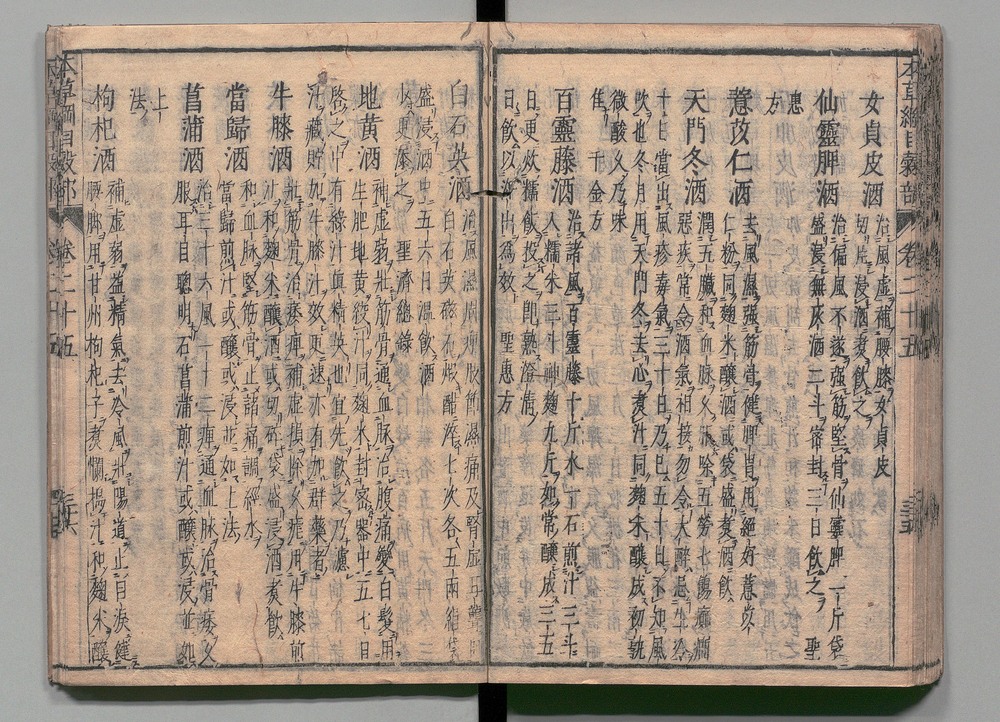 本草綱目穀部 卷二十五
女貞皮酒 治風虛補腰膝女貞皮
切片浸酒煮飲之
仙靈脾酒 治偏風不遂強筋堅骨仙靈脾一斤袋
盛浸無灰酒二斗密封三日飲之 聖
惠
方
薏苡仁酒 去風濕強筋骨健脾胃用絕好薏苡
仁粉同麹米釀酒或袋盛煮酒飲
天門冬酒 潤五臟和血脉久服除五勞七傷癲癇
惡疾常令酒氣相接勿令大醉忌生冷
十日當出風疹毒氣三十日乃已五十日不知風
吹也冬月用天門冬去心煮汁同麹米釀成初熟
微酸久乃味
佳 千金方
百靈藤酒 治諸風百靈藤十斤水一石煎汁三斗
入糯米三斗神麹九斤如常釀成三五
日更炊糯飯投之即熟澄清
日飲以汗出爲效 聖惠方
白石英酒 治風濕周痺肢節濕痛及腎虛耳聾用
白石英磁石煅醋淬七次各五兩絹袋
盛浸酒中五六日溫飲酒
少更添之 聖濟總錄
地黃酒 補虛弱壯筋骨通血脉治腹痛變白髮用
生肥地黃絞汁同麹米封密器中五七日
啓之中有綠汁眞精英也宜先飲之乃濾
汁藏貯如牛膝汁效更速亦有加群藥者
牛膝酒 壯筋骨治痿痺補虛損除久瘧用牛膝煎
汁和麹米釀酒或切碎袋盛浸酒煮飲
當歸酒 和血脉堅筋骨止諸痛調經水
當歸煎汁或釀或浸並如上法
菖蒲酒 治三十六風一十二痺通血脉治骨痿久
服耳目聰明石菖蒲煎汁或釀或浸並如
上
法
枸杞酒 補虛弱益精氣去冷風壯陽道止目淚健
腰脚用甘州枸杞子煮爛搗汁和麹米釀
本草綱目穀部 卷二十五